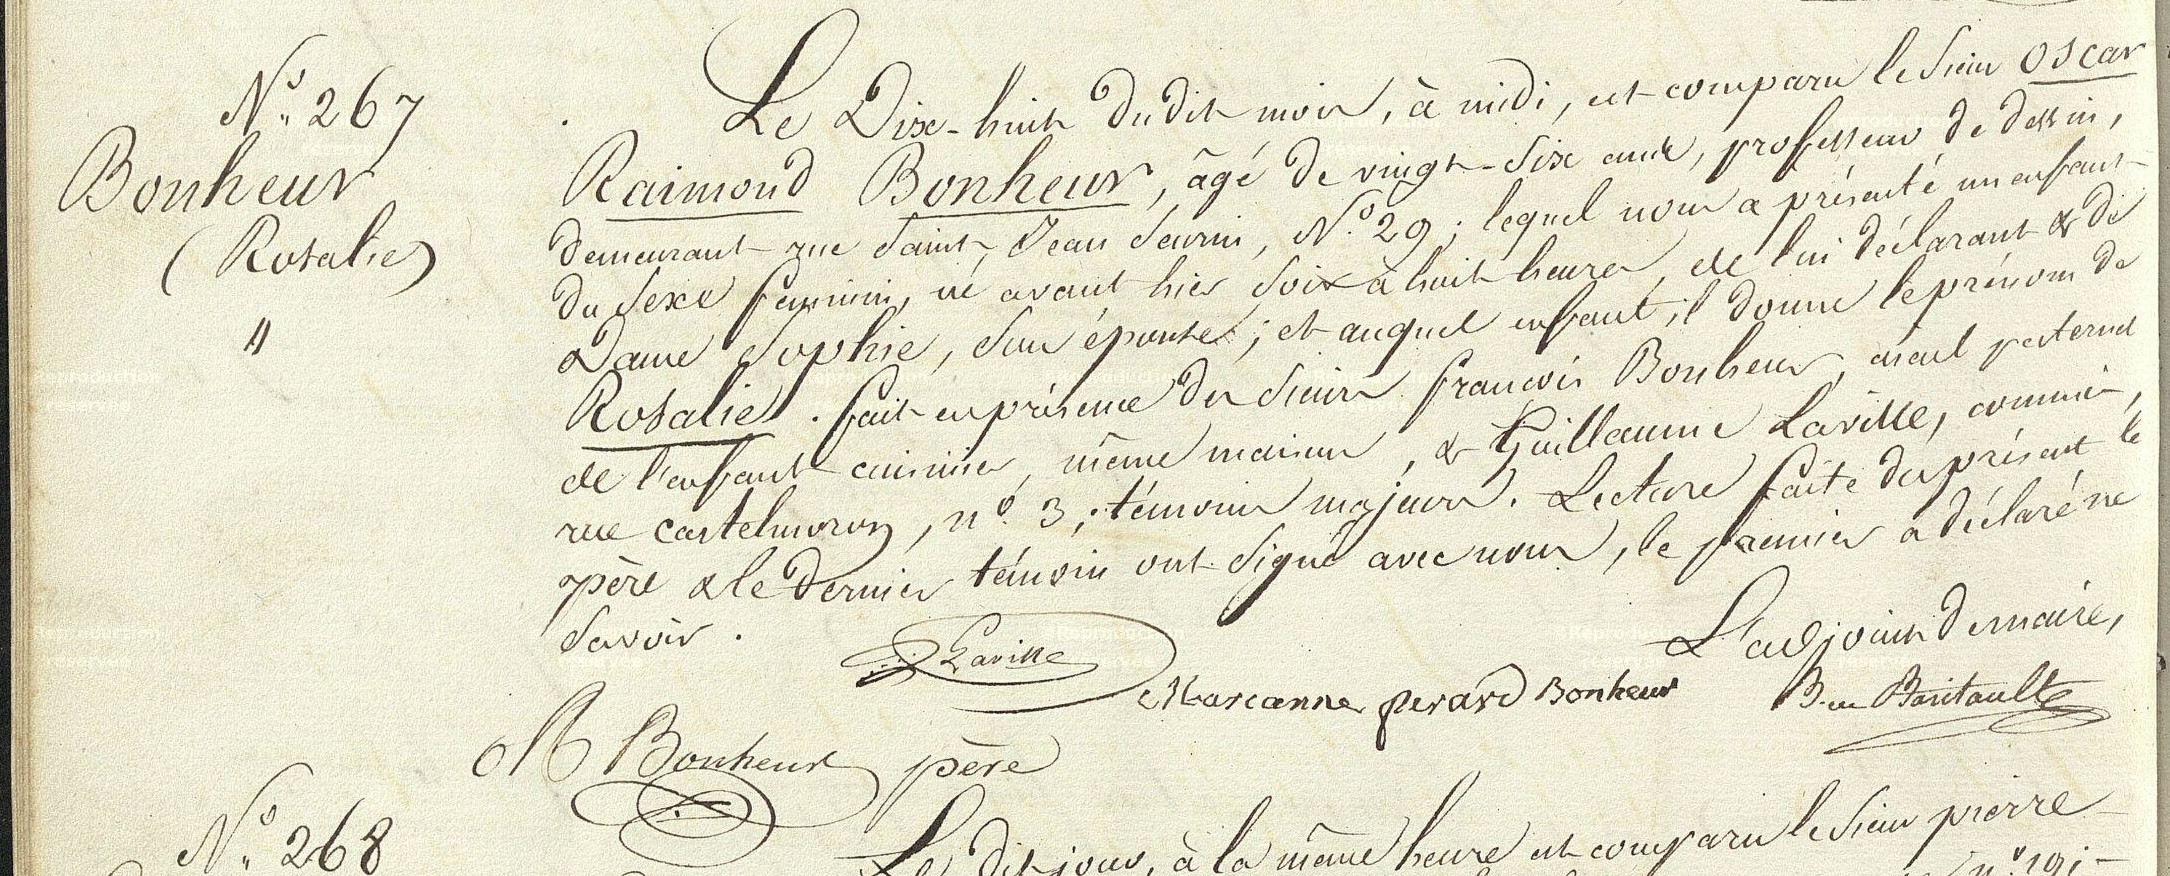 N.º 267
Bonheur
(Rosalie)
"
Le Dix-huit du dit mois, à midi, est comparu le Sieur Oscar
Raimond Bonheur, âgé de vingt-Six ans, professeur de dessin,
demeurant rue Saint Jean Seurin, N.º 29; lequel nous a présenté un enfant
du Sexe féminin, né avant hier Soir à huit heures, de lui déclarant & de
Dame Sophie, Son épouse; et auquel enfant, il donne le prénom de
Rosalie. fait en présence des Sieurs françois Bonheur, aieul paternel
de l'enfant cuisinier, même maison, & Guillaume Laville, commis,
rue castelmoron, n.º 3; témoins majeurs. Lecture faite du présent le
père & le dernier témoin ont Signé avec nous, le premier a déclaré ne
Savoir.
L'adjoint du maire,
Laville
Marcanne perard Bonheur
R Bonheur père
N.º 268
Le dit jour, à la même heure est comparu le Sieur pierre
n.º 19;